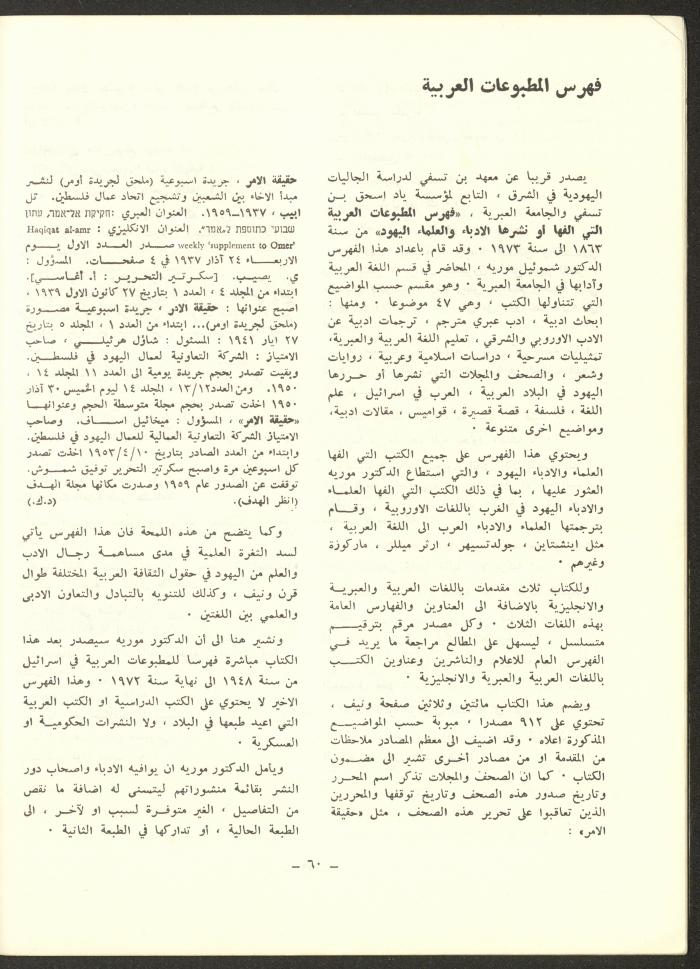 فهرس المطبوعات العربية
يصدر قريبا عن معهد بن تسفي لدراسة الجاليات
اليهودية في الشرق ، التابع لمؤسسة ياد اسحق بن
تسفي والجامعة العبرية ، «فهرس المطبوعات العربية
التي الفها أو نشرها الادباء والعلماء اليهود» من سنة
١٨٦٣ الى سنة ١٩٧٣ ٠ وقد قام باعداد هذا الفهرس
الدكتور شموئيل موريه ، المحاضر في قسم اللغة العربية
وآدابها في الجامعة العبرية ٠ وهو مقسم حسب المواضيع
التي تتناولها الكتب ، وهي ٤٧ موضوعا ٠ ومنها :
ابحاث ادبية ، ادب عبري مترجم ، ترجمات ادبية عن
الادب الاوروبي والشرقي ، تعليم اللغة العربية والعبرية،
تمثيليات مسرحية ، دراسات اسلامية وعربية ، روايات
وشعر ، والصحف والمجلات التي نشرها أو حررها
اليهود في البلاد العربية ، العرب في اسرائيل ، علم
اللغة ، فلسفة ، قصة قصيرة ، قواميس ، مقالات ادبية،
ومواضيع اخرى متنوعة ٠
ويحتوي هذا الفهرس على جميع الكتب التي الفها
العلماء والادباء اليهود ، والتي استطاع الدكتور موريه
العثور عليها ، بما في ذلك الكتب التي الفها العلماء
والادباء اليهود في الغرب باللغات الاوروبية ، وقام
بترجمتها العلماء والادباء العرب الى اللغة العربية ،
مثل اينشتاين ، جولدتسيهر ، ارثر ميللر ، ماركوزة
وغيرهم ٠
وللكتاب ثلاث مقدمات باللغات العربية والعبرية
والانجليزية بالاضافة الى العناوين والفهارس العامة
بهذه اللغات الثلاث ٠ وكل مصدر مرقم بترقيم
متسلسل ، ليسهل على المطالع مراجعة ما يريد في
الفهرس العام للاعلام والناشرين وعناوين الكتب
باللغات العربية والعبرية والانجليزية ٠
ويضم هذا الكتاب مائتين وثلاثين صفحة ونيف ،
تحتوي على ٩١٢ مصدرا ، مبوبة حسب المواضيع
المذكورة اعلاه ٠ وقد اضيف الى معظم المصادر ملاحظات
من المقدمة او من مصادر أخرى تشير الى مضمون
الكتاب ٠ كما ان الصحف والمجلات تذكر اسم المحرر
وتاريخ صدور هذه الصحف وتاريخ توقفها والمحررين
الذين تعاقبوا على تحرير هذه الصحف ، مثل «حقيقة
الامر» :
حقيقة الامر ، جريدة اسبوعية (ملحق لجريدة أومر) لنشر
مبدأ الاخاء بين الشعبين وتشجيع اتحاد عمال فلسطين. تل
ابيب ، ١٩٣٧–١٩٥٩. العنوان العبري : חקיקת אל־אמר, עתון
שבועי כתוספת ל„אמר”. العنوان الانكليزي : Haqiqat al-amr
weekly 'supplement to Omer' صدر العدد الاول يوم
الاربعاء ٢٤ آذار ١٩٣٧ في ٤ صفحات. المسؤول :
ي. يصيب. [سكرتير التحرير : أ. أغاسي].
ابتداء من المجلد ٤ ، العدد ١ بتاريخ ٢٧ كانون الاول ١٩٣٩ ،
اصبح عنوانها : حقيقة الامر ، جريدة اسبوعية مصورة
(ملحق لجريدة اومر)... ابتداء من العدد ١ ، المجلد ٥ بتاريخ
٢٧ ايار ١٩٤١ : المسئول : شاؤل هرئيلي ، صاحب
الامتياز : الشركة التعاونية لعمال اليهود في فلسطين.
وبقيت تصدر بحجم جريدة يومية الى العدد ١١ المجلد ١٤ ،
١٩٥٠. ومن العدد١٣/١٢ ، المجلد ١٤ ليوم الخميس ٣٠ آذار
١٩٥٠ اخذت تصدر بحجم مجلة متوسطة الحجم وعنوانها
«حقيقة الامر» ، المسؤول : ميخائيل اساف. وصاحب
الامتياز الشركة التعاونية العمالية للعمال اليهود في فلسطين.
وابتداء من العدد الصادر بتاريخ ١٩٥٣/٤/١٠ اخذت تصدر
كل اسبوعين مرة واصبح سكرتير التحرير توفيق شموش.
توقفت عن الصدور عام ١٩٥٩ وصدرت مكانها مجلة الهدف
(انظر الهدف). (د.ك.)
وكما يتضح من هذه اللمحة فان هذا الفهرس يأتي
لسد الثغرة العلمية في مدى مساهمة رجال الادب
والعلم من اليهود في حقول الثقافة العربية المختلفة طوال
قرن ونيف ، وكذلك للتنويه بالتبادل والتعاون الادبي
والعلمي بين اللغتين ٠
ونشير هنا الى أن الدكتور موريه سيصدر بعد هذا
الكتاب مباشرة فهرسا للمطبوعات العربية في اسرائيل
من سنة ١٩٤٨ الى نهاية سنة ١٩٧٢ ٠ وهذا الفهرس
الاخير لا يحتوي على الكتب الدراسية او الكتب العربية
التي اعيد طبعها في البلاد ، ولا النشرات الحكومية او
العسكرية ٠
ويأمل الدكتور موريه ان يوافيه الادباء واصحاب دور
النشر بقائمة منشوراتهم ليتسنى له اضافة ما نقص
من التفاصيل ، الغير متوفرة لسبب او لآخر ، الى
الطبعة الحالية ، أو تداركها في الطبعة الثانية ٠
– ٦٠ –